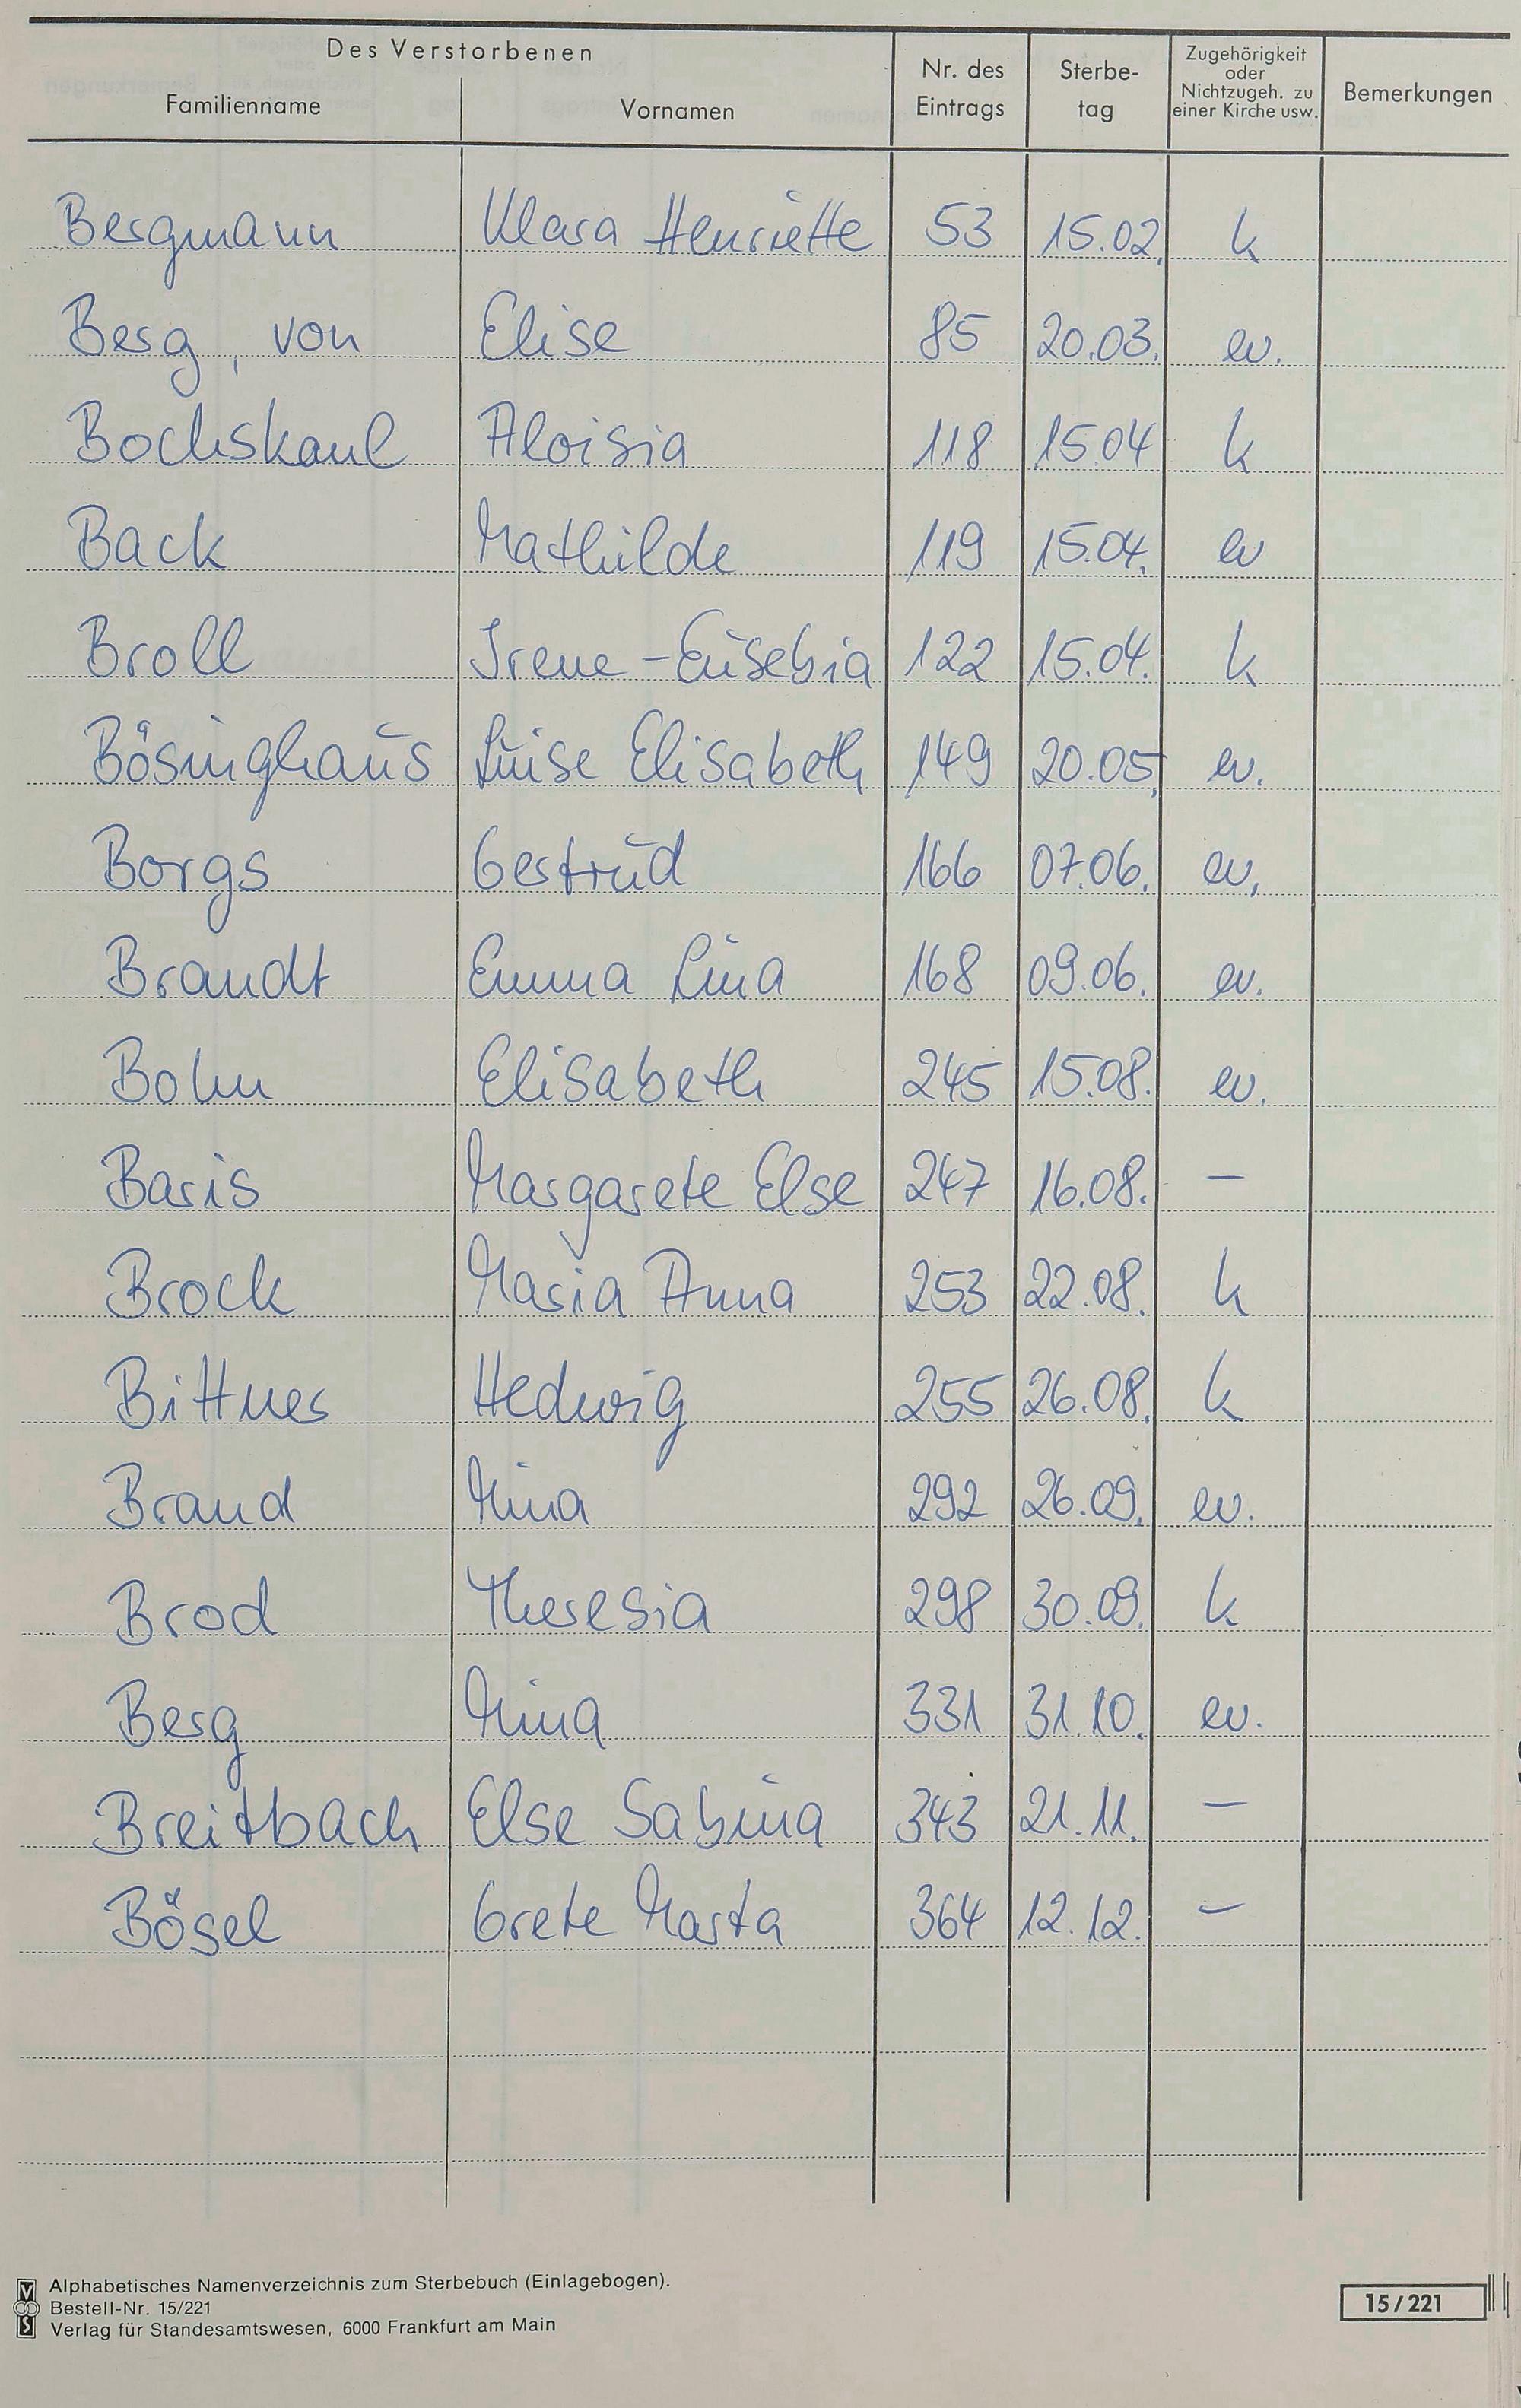 Des Verstorbenen
Familienname Vornamen Nr. des Eintrags Sterbe-tag Zugehörigkeit oder Nichtzugeh. zu einer Kirche usw. Bemerkungen
Bergmann Klara Henriette 53 15.02. k
Berg, von Elise 85 20.03. ev.
Bochskaul Aloisia 118 15.04 k
Back Mathilde 119 15.04. ev
Broll Irene-Eusebia 122 15.04. k
Bösinghaus Luise Elisabeth 149 20.05. ev.
Borgs Gertrud 166 07.06. ev.
Brandt Emma Lina 168 09.06. ev.
Bohn Elisabeth 245 15.08. ev.
Baris Margarete Else 247 16.08. —
Brock Maria Anna 253 22.08. k
Bittner Hedwig 255 26.08. k
Brand Mina 292 26.09. ev.
Brod Theresia 298 30.09. k
Berg Mina 331 31.10. ev.
Breitbach Else Sabina 343 21.11. —
Bösel Grete Marta 364 12.12. —
Alphabetisches Namenverzeichnis zum Sterbebuch (Einlagebogen).
Bestell-Nr. 15/221
Verlag für Standesamtswesen, 6000 Frankfurt am Main
15/221